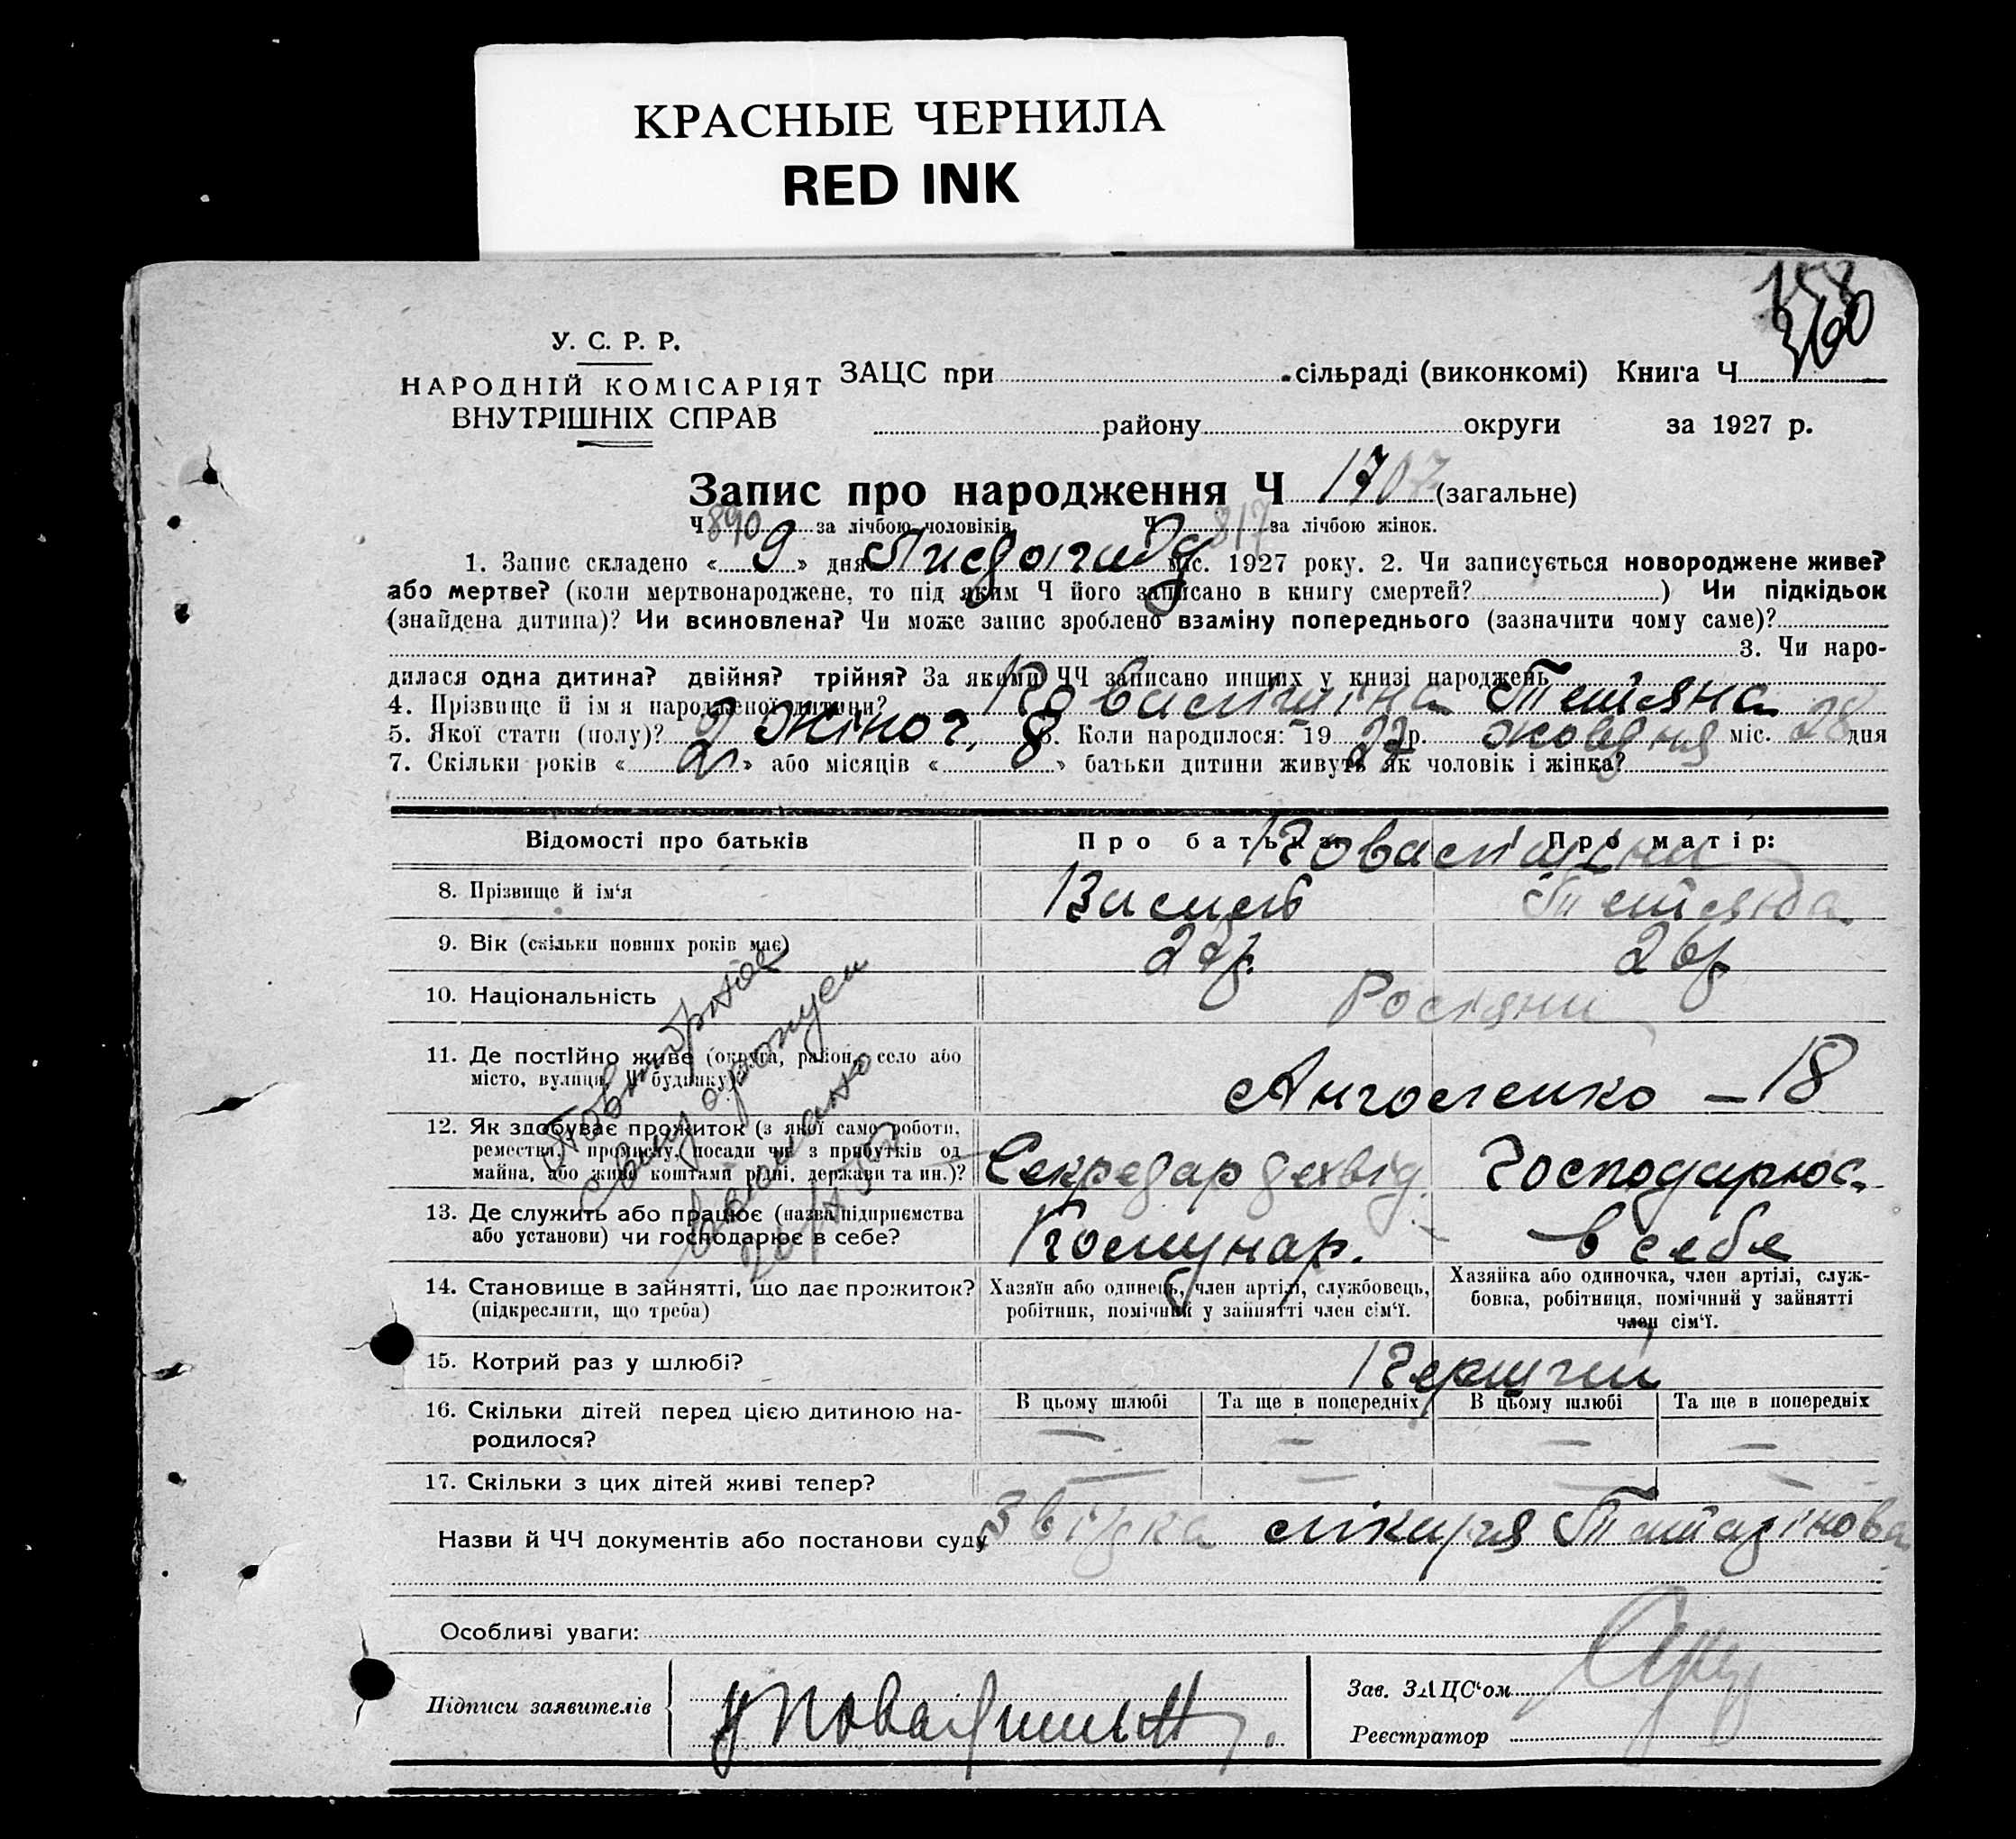 КРАСНЫЕ ЧЕРНИЛА
RED INK
158
360
У. С. Р. Р.
НАРОДНІЙ КОМІСАРІЯТ
ВНУТРІШНІХ СПРАВ
ЗАЦС при сільраді (виконкомі) Книга Ч
району округи за 1927 р.
Запис про народження Ч 1707 (загальне)
Ч 890 за лічбою чоловіків Ч 817 за лічбою жінок.
1. Запис складено « 9 » дня Листопаду міс. 1927 року. 2. Чи записується новороджене живе?
або мертве? (коли мертвонароджене, то під яким Ч його записано в книгу смертей? ) Чи підкідьок
(знайдена дитина)? Чи всиновлена? Чи може запис зроблено взаміну попереднього (зазначити чому саме)?
3. Чи наро-
дилася одна дитина? двійня? трійня? За якими ЧЧ записано инших у книзі народжень
4. Прізвище й ім я народженої дитини? Тетяна
5. Якої статі (полу)? Жіноч, 6. Коли народилося: 19 27 р. жовтня міс. 28 дня
7. Скільки років « 2 » або місяців « » батьки дитини живуть як чоловік і жінка?
Відомості про батьків
Про батька: Про матір:
8. Прізвище й ім‘я
Василь Тетяна
9. Вік (скільки повних років має)
27р. 26р
10. Національність
Росіяни
11. Де постійно живе (округа, район, село або
місто, вулиця, Ч будинку)
18
12. Як здобуває прожиток (з якої само роботи,
ремества, промислу, посади чи з прибутків од
майна, або живе коштами рідні, держави та ин.)?
Секретар техвід. Господарює
13. Де служить або працює (назва підприємства
або установи) чи господарює в себе?
Комунар. в себе
14. Становище в зайнятті, що дає прожиток?
(підкреслити, що треба)
Хазяїн або одинець, член артілі, службовець,
робітник, помічний у зайнятті член сім‘ї.
Хазяйка або одиночка, член артілі, служ-
бовка, робітниця, помічний у зайнятті
член сім‘ї.
15. Котрий раз у шлюбі?
Перший
16. Скільки дітей перед цією дитиною на-
родилося?
В цьому шлюбі Та ще в попередніх В цьому шлюбі Та ще в попередніх
— — — —
17. Скільки з цих дітей живі тепер?
— — — —
Назви й ЧЧ документів або постанови суду Звістка лікаря
Особливі уваги:
Підписи заявителів
Зав. ЗАЦС‘ом
Реєстратор